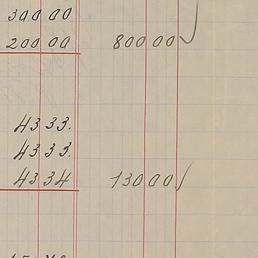 300 00
200 00 800 00
43 33.
43 33.
43 34 130 00